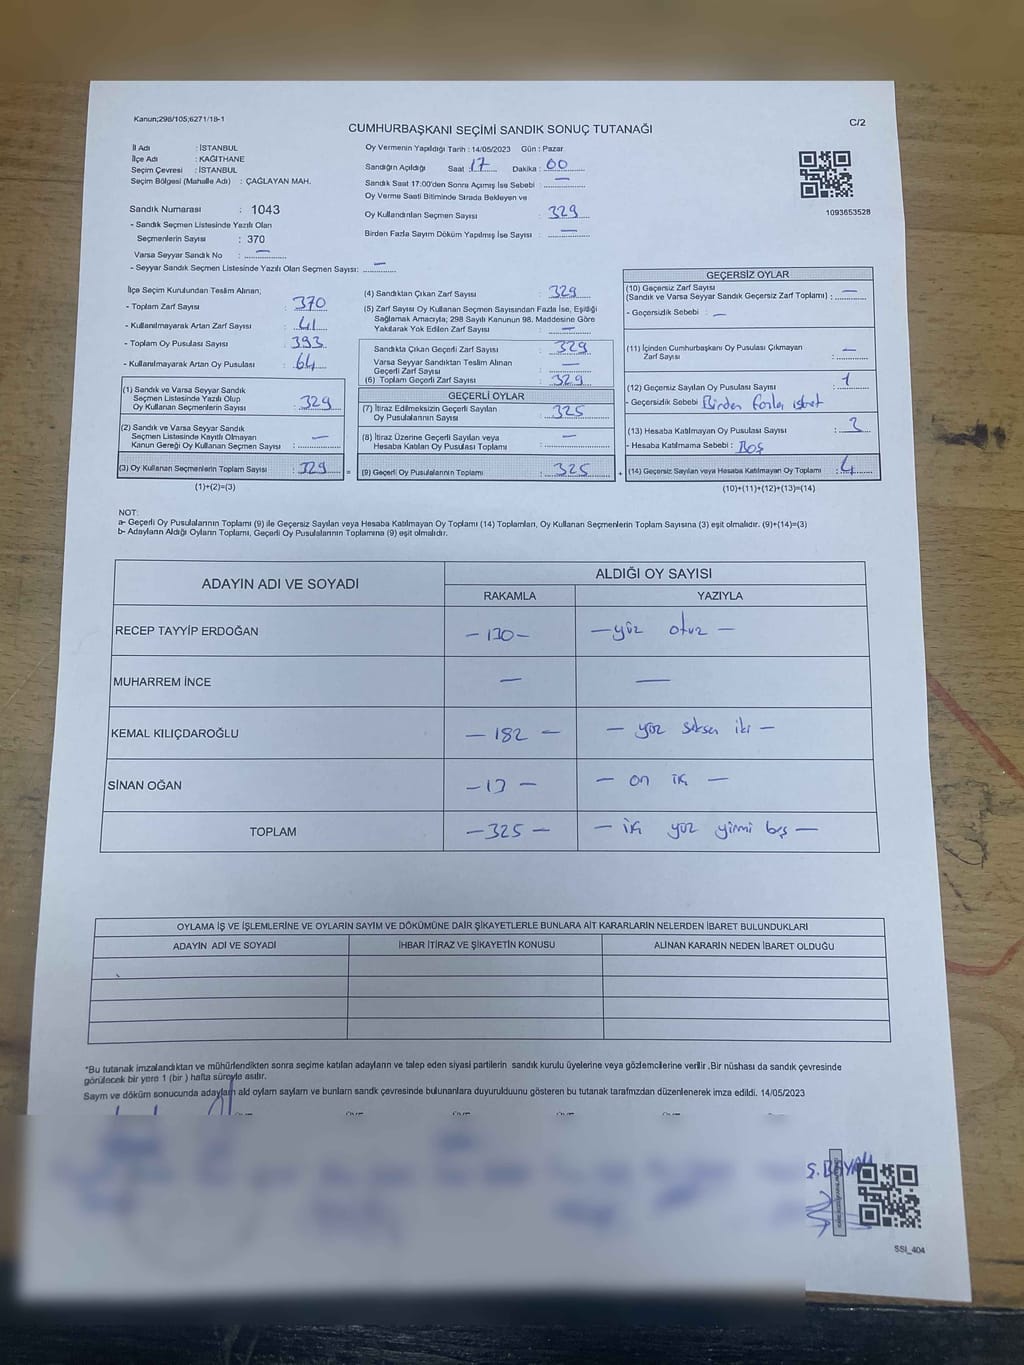 Kanun;298/105;6271/18-1
C/2
CUMHURBAŞKANI SEÇİMİ SANDIK SONUÇ TUTANAĞI
İl Adı : İSTANBUL
İlçe Adı : KAĞITHANE
Seçim Çevresi : İSTANBUL
Seçim Bölgesi (Mahalle Adı) : ÇAĞLAYAN MAH.
Sandık Numarası : 1043
- Sandık Seçmen Listesinde Yazılı Olan
Seçmenlerin Sayısı : 370
Varsa Seyyar Sandık No : —
- Seyyar Sandık Seçmen Listesinde Yazılı Olan Seçmen Sayısı: —
Oy Vermenin Yapıldığı Tarih : 14/05/2023 Gün : Pazar
Sandığın Açıldığı Saat : 17 Dakika : 00
Sandık Saat 17:00'den Sonra Açımış İse Sebebi : —
Oy Verme Saati Bitiminde Sırada Bekleyen ve
Oy Kullandırılan Seçmen Sayısı : 329
Birden Fazla Sayım Döküm Yapılmış İse Sayısı : —
1093653528
İlçe Seçim Kurulundan Teslim Alınan;
- Toplam Zarf Sayısı : 370
- Kullanılmayarak Artan Zarf Sayısı : 41
- Toplam Oy Pusulası Sayısı : 393
- Kullanılmayarak Artan Oy Pusulası : 64
(1) Sandık ve Varsa Seyyar Sandık
Seçmen Listesinde Yazılı Olup
Oy Kullanan Seçmenlerin Sayısı : 329
(2) Sandık ve Varsa Seyyar Sandık
Seçmen Listesinde Kayıtlı Olmayan
Kanun Gereği Oy Kullanan Seçmen Sayısı : —
(3) Oy Kullanan Seçmenlerin Toplam Sayısı : 329 =
(1)+(2)=(3)
(4) Sandıktan Çıkan Zarf Sayısı : 329
(5) Zarf Sayısı Oy Kullanan Seçmen Sayısından Fazla İse, Eşitliği
Sağlamak Amacıyla; 298 Sayılı Kanunun 98. Maddesine Göre
Yakılarak Yok Edilen Zarf Sayısı : —
Sandıkta Çıkan Geçerli Zarf Sayısı : 329
Varsa Seyyar Sandıktan Teslim Alınan
Geçerli Zarf Sayısı : —
(6) Toplam Geçerli Zarf Sayısı : 329
GEÇERLİ OYLAR
(7) İtiraz Edilmeksizin Geçerli Sayılan
Oy Pusulalarının Toplamı : 325
(8) İtiraz Üzerine Geçerli Sayılan veya
Hesaba Katılan Oy Pusulası Toplamı : —
(9) Geçerli Oy Pusulalarının Toplamı : 325 +
GEÇERSİZ OYLAR
(10) Geçersiz Zarf Sayısı
(Sandık ve Varsa Seyyar Sandık Geçersiz Zarf Toplamı) : —
- Geçersizlik Sebebi : —
(11) İçinden Cumhurbaşkanı Oy Pusulası Çıkmayan
Zarf Sayısı : —
(12) Geçersiz Sayılan Oy Pusulası Sayısı : 1
- Geçersizlik Sebebi Birden fazla işaret
(13) Hesaba Katılmayan Oy Pusulası Sayısı : 3
- Hesaba Katılmama Sebebi : Boş
(14) Geçersiz Sayılan veya Hesaba Katılmayan Oy Toplamı : 4
(10)+(11)+(12)+(13)=(14)
NOT:
a- Geçerli Oy Pusulalarının Toplamı (9) ile Geçersiz Sayılan veya Hesaba Katılmayan Oy Toplamı (14) Toplamları, Oy Kullanan Seçmenlerin Toplam Sayısına (3) eşit olmalıdır. (9)+(14)=(3)
b- Adayların Aldığı Oyların Toplamı, Geçerli Oy Pusulalarının Toplamına (9) eşit olmalıdır.
ADAYIN ADI VE SOYADI
ALDIĞI OY SAYISI
RAKAMLA YAZIYLA
RECEP TAYYİP ERDOĞAN — 130 — — yüz otuz —
MUHARREM İNCE — —
KEMAL KILIÇDAROĞLU — 182 — — yüz seksen iki —
SİNAN OĞAN — 13 — — on iki —
TOPLAM — 325 — — iki yüz yirmi beş —
OYLAMA İŞ VE İŞLEMLERİNE VE OYLARIN SAYIM VE DÖKÜMÜNE DAİR ŞİKAYETLERLE BUNLARA AİT KARARLARIN NELERDEN İBARET BULUNDUKLARI
ADAYIN ADI VE SOYADI İHBAR İTİRAZ VE ŞİKAYETİN KONUSU ALINAN KARARIN NEDEN İBARET OLDUĞU
*Bu tutanak imzalandıktan ve mühürlendikten sonra seçime katılan adayların ve talep eden siyasi partilerin sandık kurulu üyelerine veya gözlemcilerine verilir .Bir nüshası da sandık çevresinde
görülecek bir yere 1 (bir ) hafta süreyle asılır.
Sayım ve döküm sonucunda adayların aldı oyların sayların ve bunların sandık çevresinde bulunanlara duyurulduunu gösteren bu tutanak tarafımızdan düzenlenerek imza edildi. 14/05/2023
SSI_404